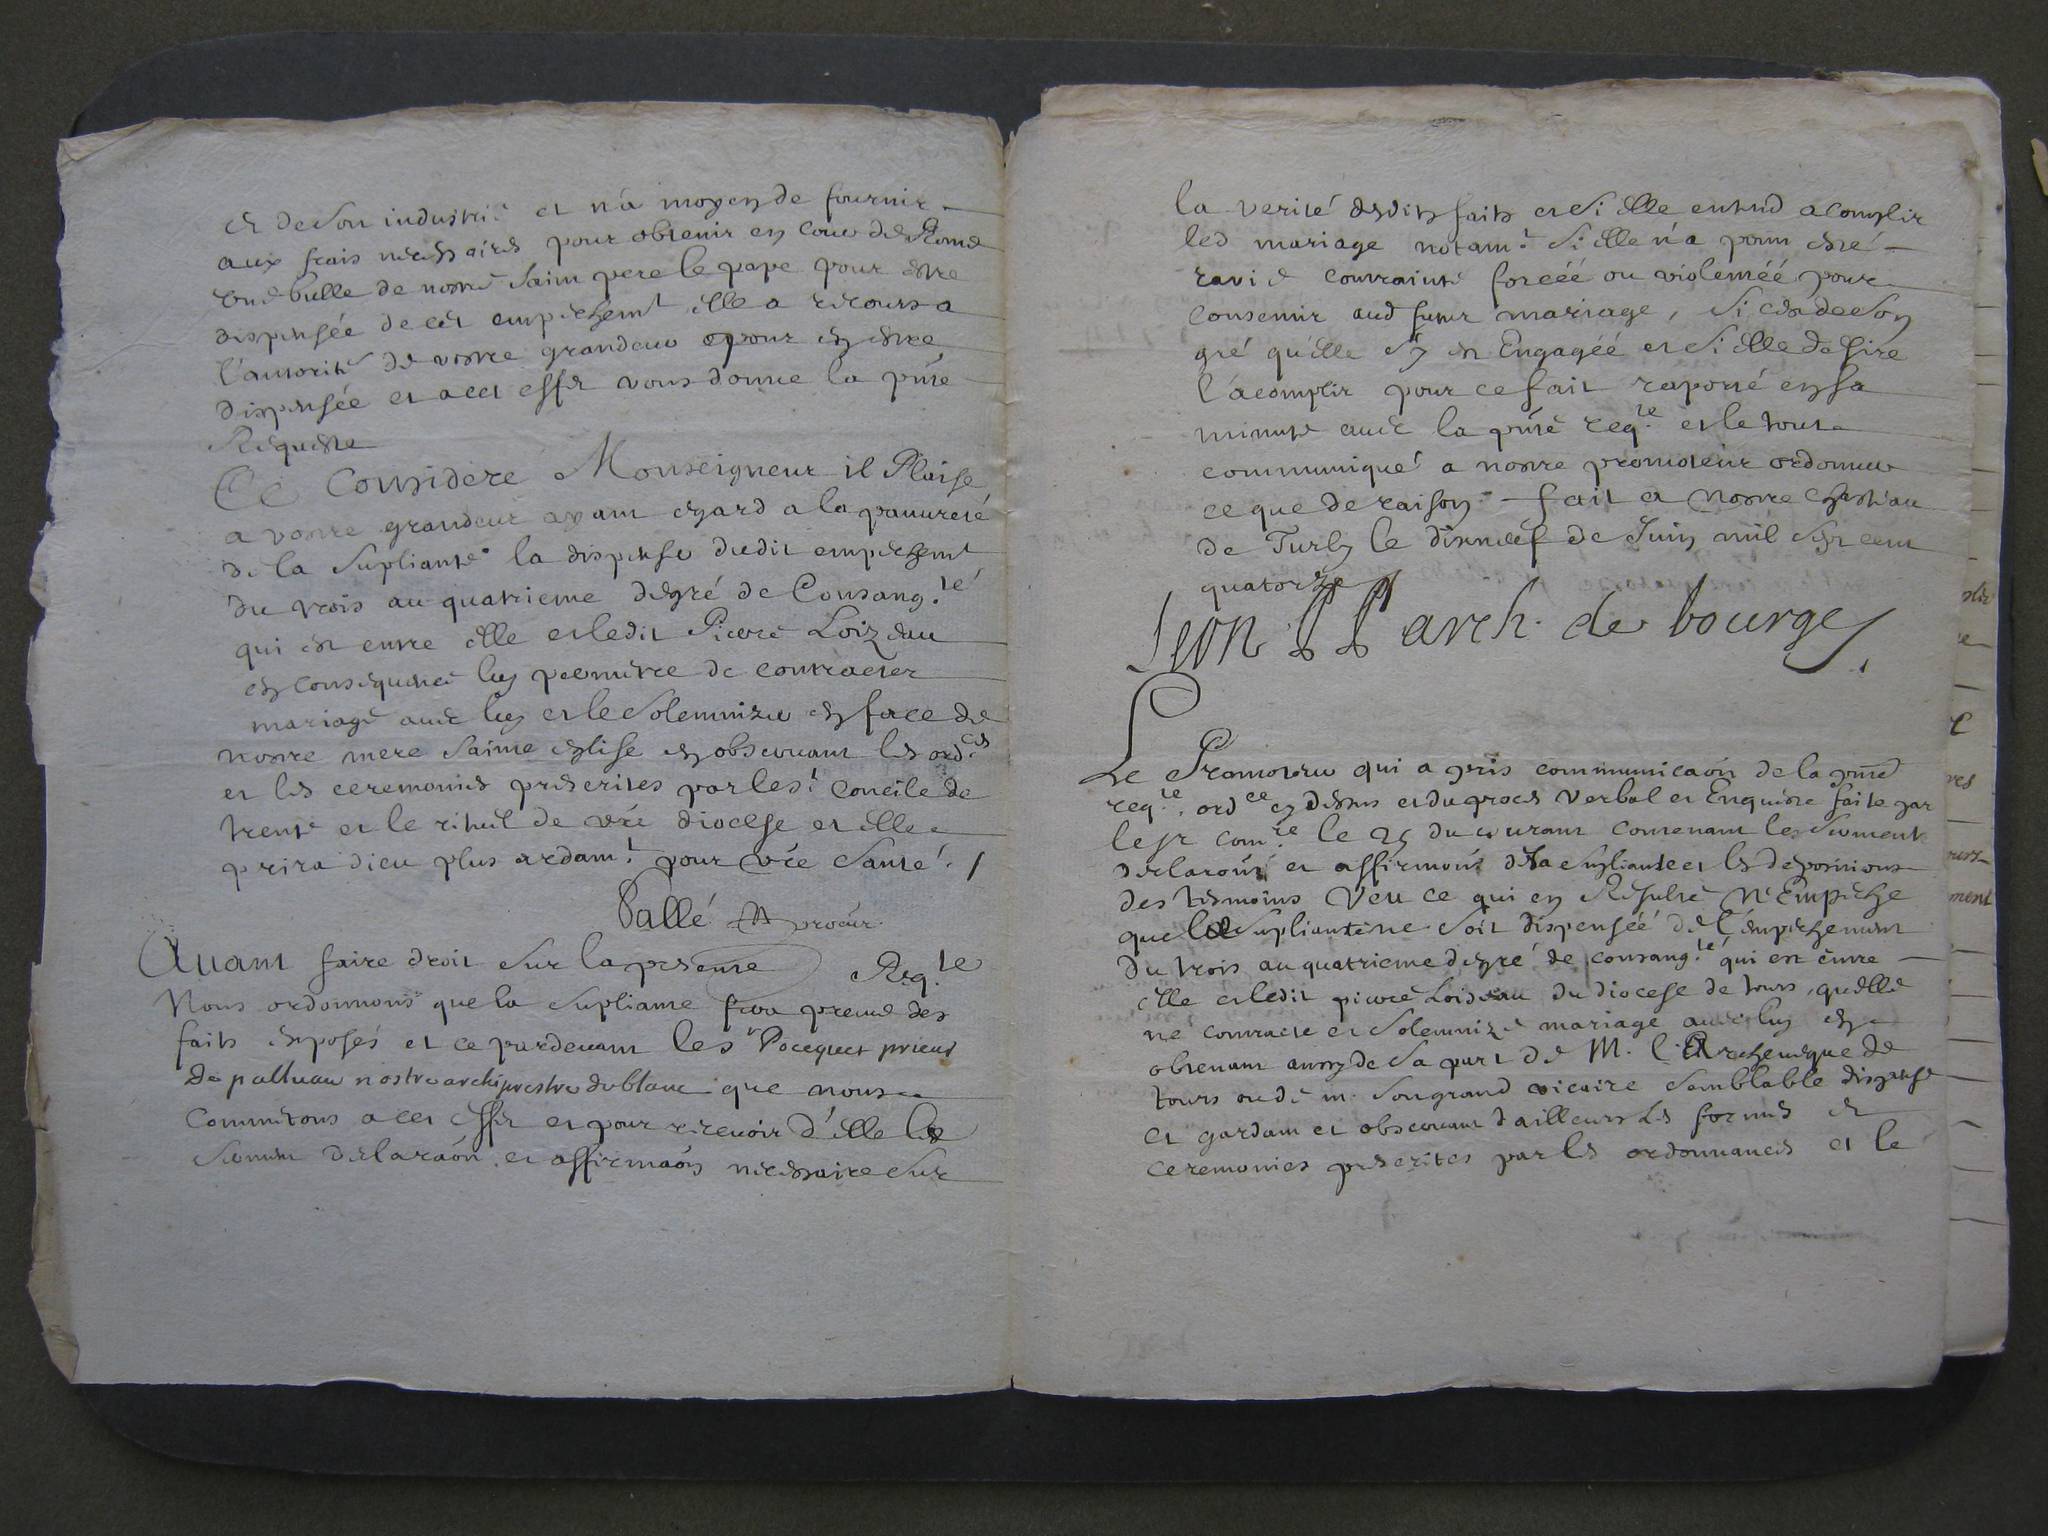 et de son industrie et n'a moyen de fournir
aux frais necessaires pour obtenir en cour de Rome
une bulle de nostre saint pere le pape pour estre
dispensée de cet empeschemt elle a recours a
l'autorité de vostre grandeur pour en estre
dispensée et a cet effet vous donne la pnte
Requeste
Ce Considere Monseigneur il Plaise
a vostre grandeur ayant egard a la pauvreté
de la supliante la dispenser dudit empeschemt
du trois au quatrieme degré de Consang.té
qui est entre elle et ledit Pierre Loizeau
en consequence luy permettre de contracter
mariage avec luy et le solemnizer en face de
nostre mere sainte eglise en observant les ord.ces
et les ceremonies prescrites par le st Concile de
trente et le rituel de vre diocese et elle
prira dieu plus ardam.t pour vre santé. /
Vallé procur
Avant faire droit sur la presente Req.te
Nous ordonnons que la supliante fera preuve des
faits exposés et ce pardevant le sr Pocquet prieur
de palluau nostre archiprestre du blanc que nous
commetons a cet effet et pour recevoir d'elle le
serment declaraôn et affirmaôn necessaire sur
la verité desdits faits et si elle entend acomplir
led mariage notam.t si elle n'a point esté
ravie contrainte forcéé ou violentéé pour
consentir aud futur mariage, si c'est de son
gré qu'elle s'y est Engagéé et si elle desire
l'acomplir pour ce fait raporté en sa
minute avec la pnte req.te et le tout
communiqué a nostre promoteur ordonner
ce que de raison - fait a nostre chasteau
de Turly le dixneuf de Juin mil sept cent
quatorze
Leon P P arch. de bourges.
Le Promoteur qui a pris communicaôn de la pnte
req.te, ordce cy dessus et du proces verbal et Enqueste faite par
le sr com.re le 25 du courant contenant les serment
declaraôn et affirmaôn de la supliante et les depositions
des tesmoins Veu ce qui en Resulte N'Empesche
que la supliante ne soit dispenséé de l'empeschement
du trois au quatrieme degré de consang.té qui est entre
elle et ledit pierre Loiseau du diocese de tours, qu'elle
ne contracte et solemnize mariage avec luy en
obtenant aussy de sa part de M. l'Archeveque de
tours ou de m. son grand vicaire semblable dispense
et gardant et observant d'ailleurs les formes et
ceremonies prescrites par les ordonnances et le